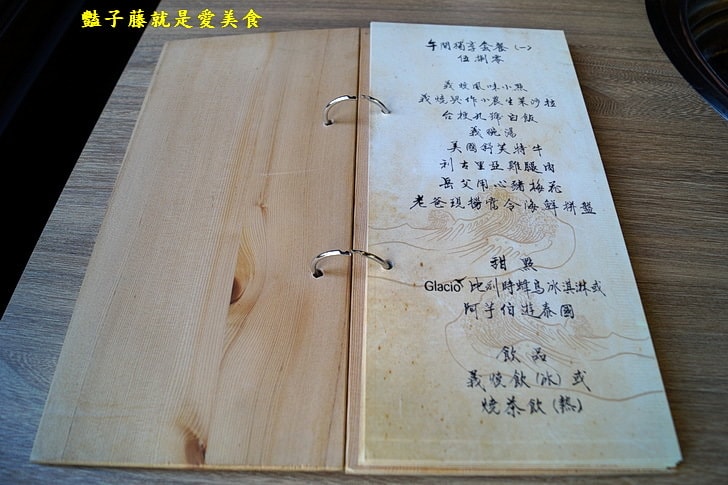 豔子藤就是愛美食
午間獨享套餐(一)
伍捌零
義燒風味小點
義燒契作小農生菜沙拉
台梗九號白飯
義燒湯
美國舒芙特牛
利吉里亞雞腿肉
岳父用心豬梅花
老爸現撈當令海鮮拼盤
甜點
Glacio 比利時蜂鳥冰淇淋或
阿芋伯遊泰國
飲品
義燒飲(冰)或
燒茶飲(熱)